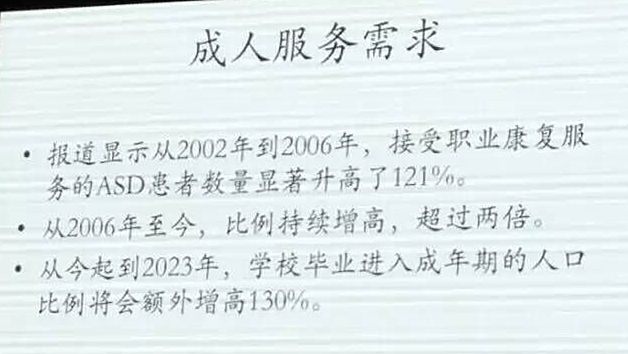 成人服务需求
• 报道显示从2002年到2006年，接受职业康复服
务的ASD患者数量显著升高了121%。
• 从2006年至今，比例持续增高，超过两倍。
• 从今起到2023年，学校毕业进入成年期的人口
比例将会额外增高130%。